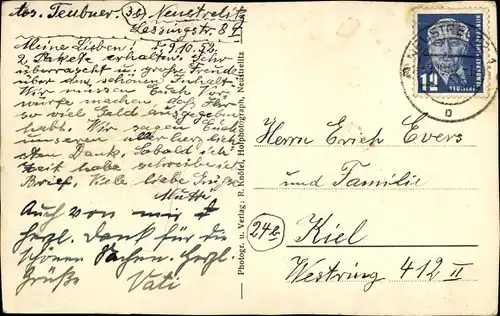 Abs. Teubner, (3b) Neustrelitz
Lessingstr. 84
Meine Lieben! d. 9.10.52.
2 Pakete erhalten. Sehr
überrascht u. große Freude
über den schönen Inhalt.
Wir müssen Euch Vor-
würfe machen, daß Ihr
so viel Geld ausgegeben
habt. Wir sagen Euch
unseren allerherzlich-
sten Dank. Sobald ich
Zeit habe schreibe ich
Brief. Viele liebe Grüße
Mutti
Auch von mir
herzl. Dank für die
schönen Sachen. Herzl.
Grüße Vati
Photogr. u. Verlag: R. Knöfel, Hofphotograph, Neustrelitz
NEUSTREL
b
12
DEUTSCHE
DEMOKRATISCHE REPUBLIK
Herrn Erich Evers
und Familie
(24b) Kiel
Westring 412 II